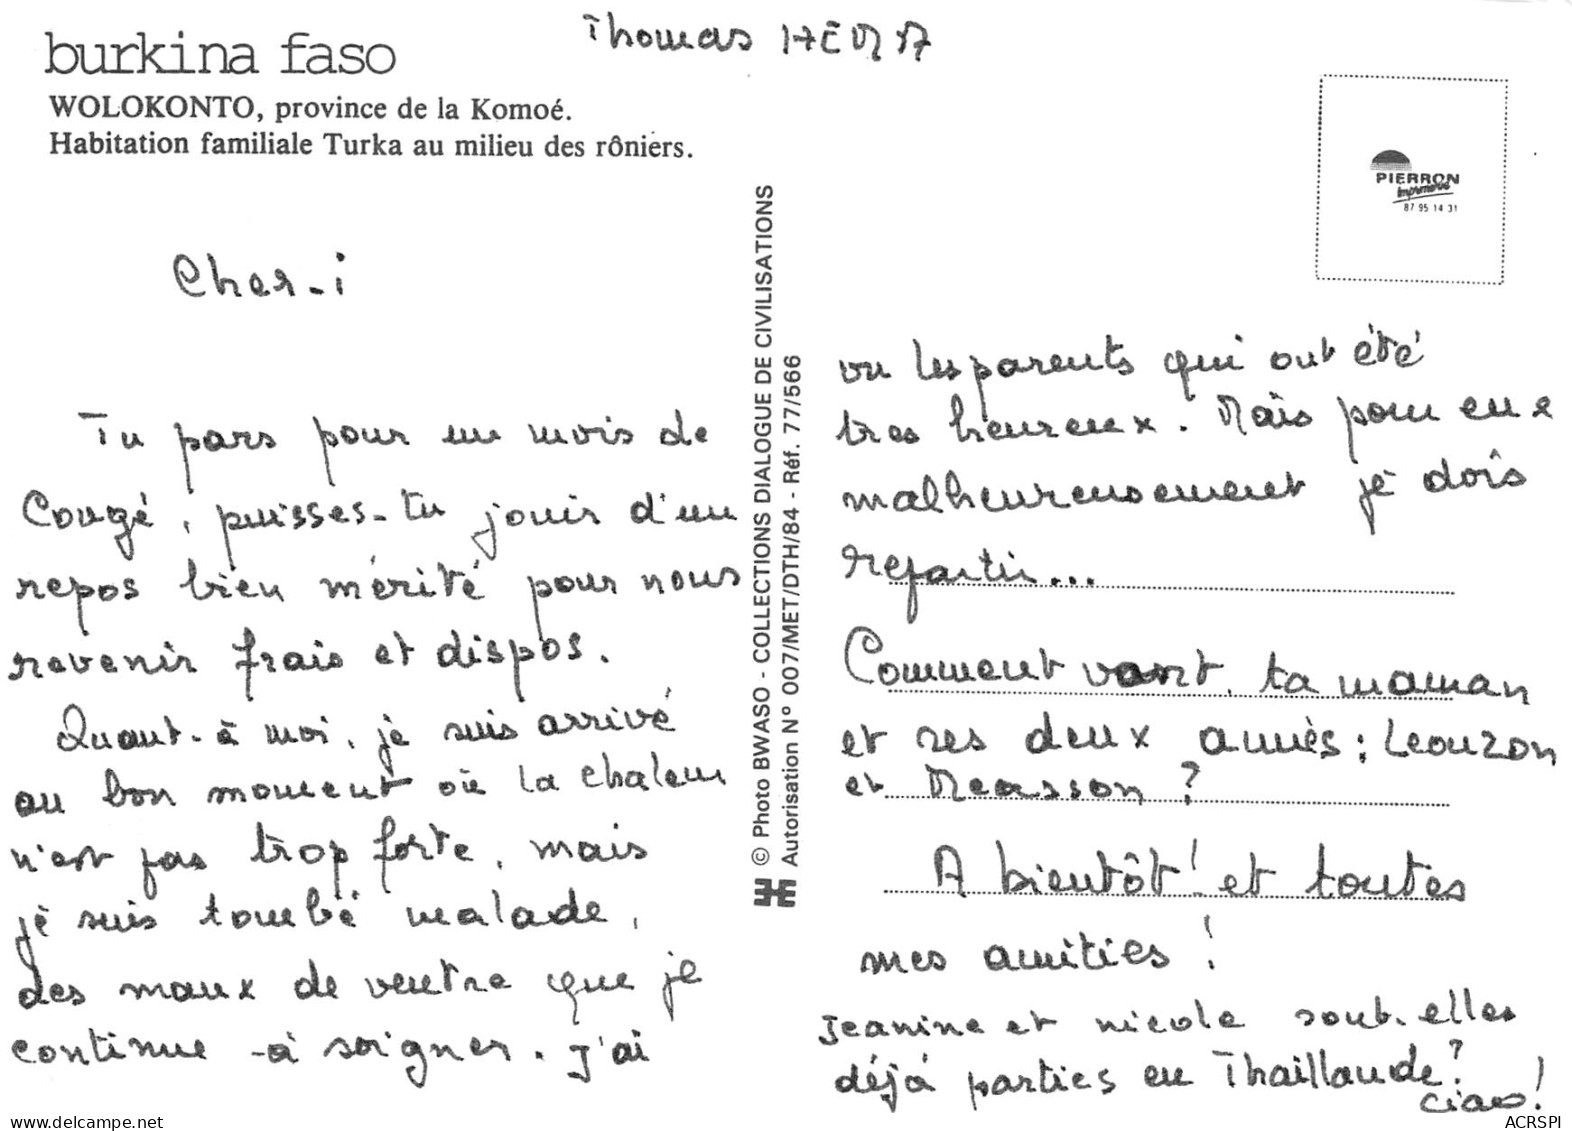 Thomas
burkina faso
WOLOKONTO, province de la Komoé.
Habitation familiale Turka au milieu des rôniers.
PIERRON
Imprimerie
87 95 14 31
Cher-i
Tu pars pour un mois de
Congé, puisses-tu jouir d'un
repos bien mérité pour nous
revenir frais et dispos.
Quant-à moi, je suis arrivé
au bon moment où la chaleur
n'est pas trop forte, mais
je suis tombé malade,
des maux de ventre que je
continue -à soigner. J'ai
© Photo BWASO - COLLECTIONS DIALOGUE DE CIVILISATIONS
Autorisation N° 007/MET/DTH/84 - Réf. 77/566
vu les parents qui ont été
tres heureux. Mais pour eux
malheureusement je dois
repartir...
Comment vont ta maman
et ses deux amies : Leouzon
et Measson ?
A bientôt ! et toutes
mes amitiés !
Jeanine et nicole sont-elles
déjà parties en Thaillande ?
ciao !
www.delcampe.net
ACRSPI